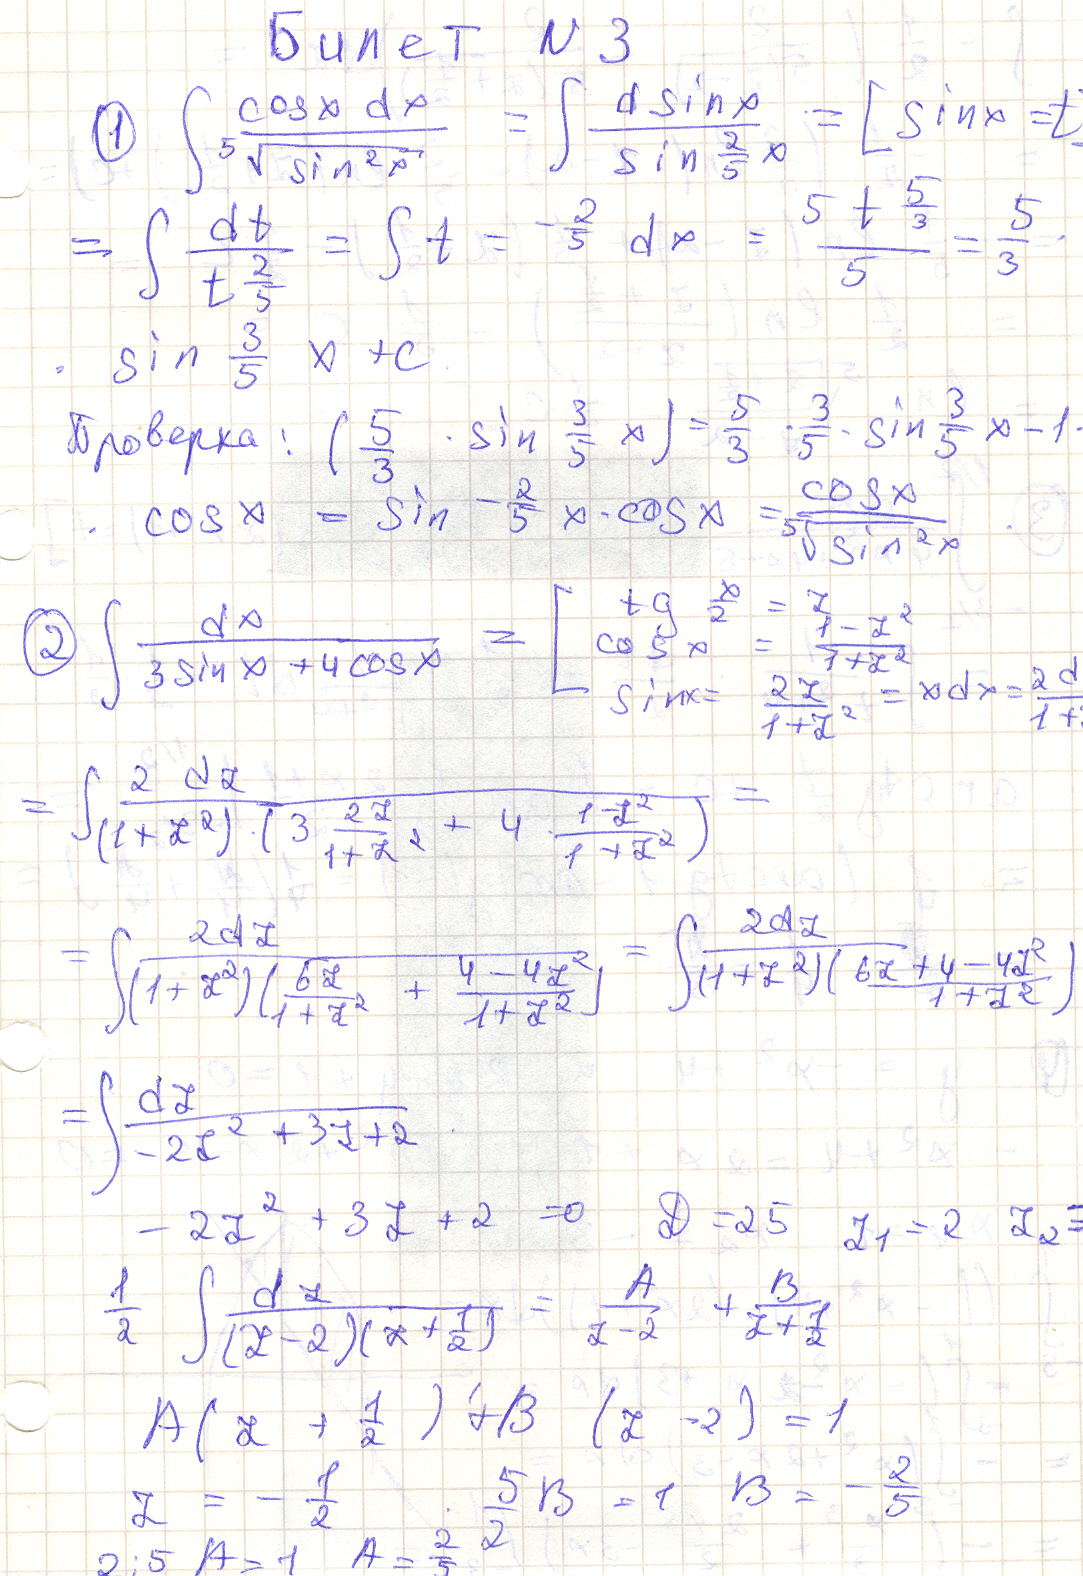 Билет N 3
① ∫ cosx dx / ⁵√sin²x = ∫ d sinx / sin^(2/5) x = [ sinx = t ]
= ∫ dt / t^(2/5) = ∫ t = -2/5 dx = 5 t^(5/3) / 5 = 5/3 ·
· sin 3/5 x + c
Проверка: ( 5/3 · sin 3/5 x ) = 5/3 · 3/5 · sin 3/5 x - 1 ·
· cos x = sin -2/5 x · cosx = cosx / ⁵√sin²x .
② ∫ dx / 3sinx + 4cosx = [ tg x/2 = z
cosx = 1-z² / 1+z²
sinx = 2z / 1+z² = xdx = 2d / 1+z
= ∫ 2 dz / (1+z²) · (3 2z / 1+z² + 4 · 1-z² / 1+z²) =
= ∫ 2dz / (1+z²)(6z / 1+z² + 4-4z² / 1+z²) = ∫ 2dz / (1+z²)(6z+4-4z² / 1+z²)
= ∫ dz / -2z² + 3z + 2 .
-2z² + 3z + 2 = 0 D = 25 z₁ = 2 z₂ =
1/2 ∫ dz / (z-2)(z+1/2) = A / z-2 + B / z+1/2
A(z + 1/2) + B (z - 2) = 1
z = -1/2 · 5/2 B = 1 B = -2/5
2,5 A = 1 A = 2/5